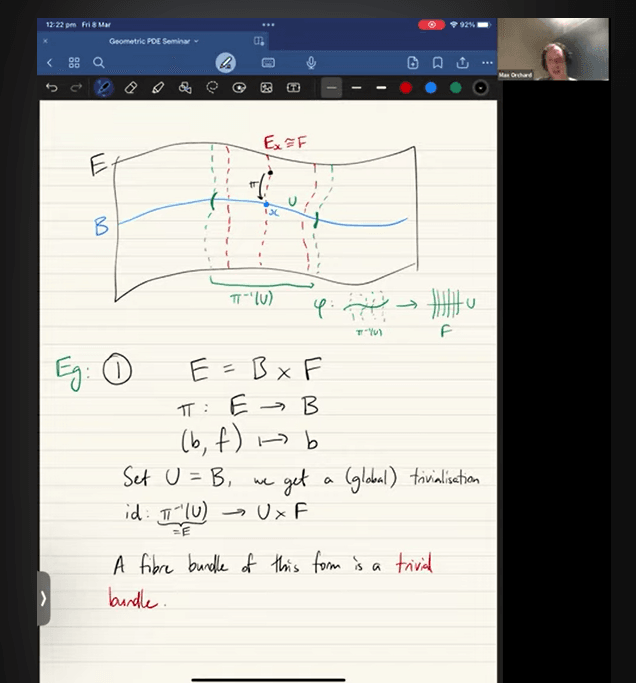 12:22 pm Fri 8 Mar
92%
Geometric PDE Seminar
Max Orchard
Eₓ ≅ F
E
π
U
x
B
π⁻¹(U)
φ: → U
π⁻¹(U) F
Eg: ① E = B × F
π : E → B
(b, f) ↦ b
Set U = B, we get a (global) trivialisation
id: π⁻¹(U) → U × F
=E
A fibre bundle of this form is a trivial
bundle.